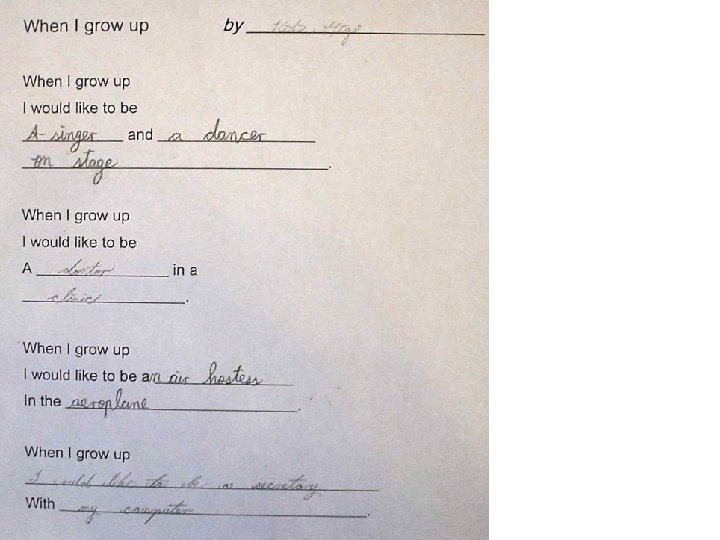 When I grow up by
When I grow up
I would like to be
A singer and a dancer
on stage.
When I grow up
I would like to be
A doctor in a
clinic.
When I grow up
I would like to be an air hostess
In the aeroplane.
When I grow up
I would like to be a secretary
With my computer.